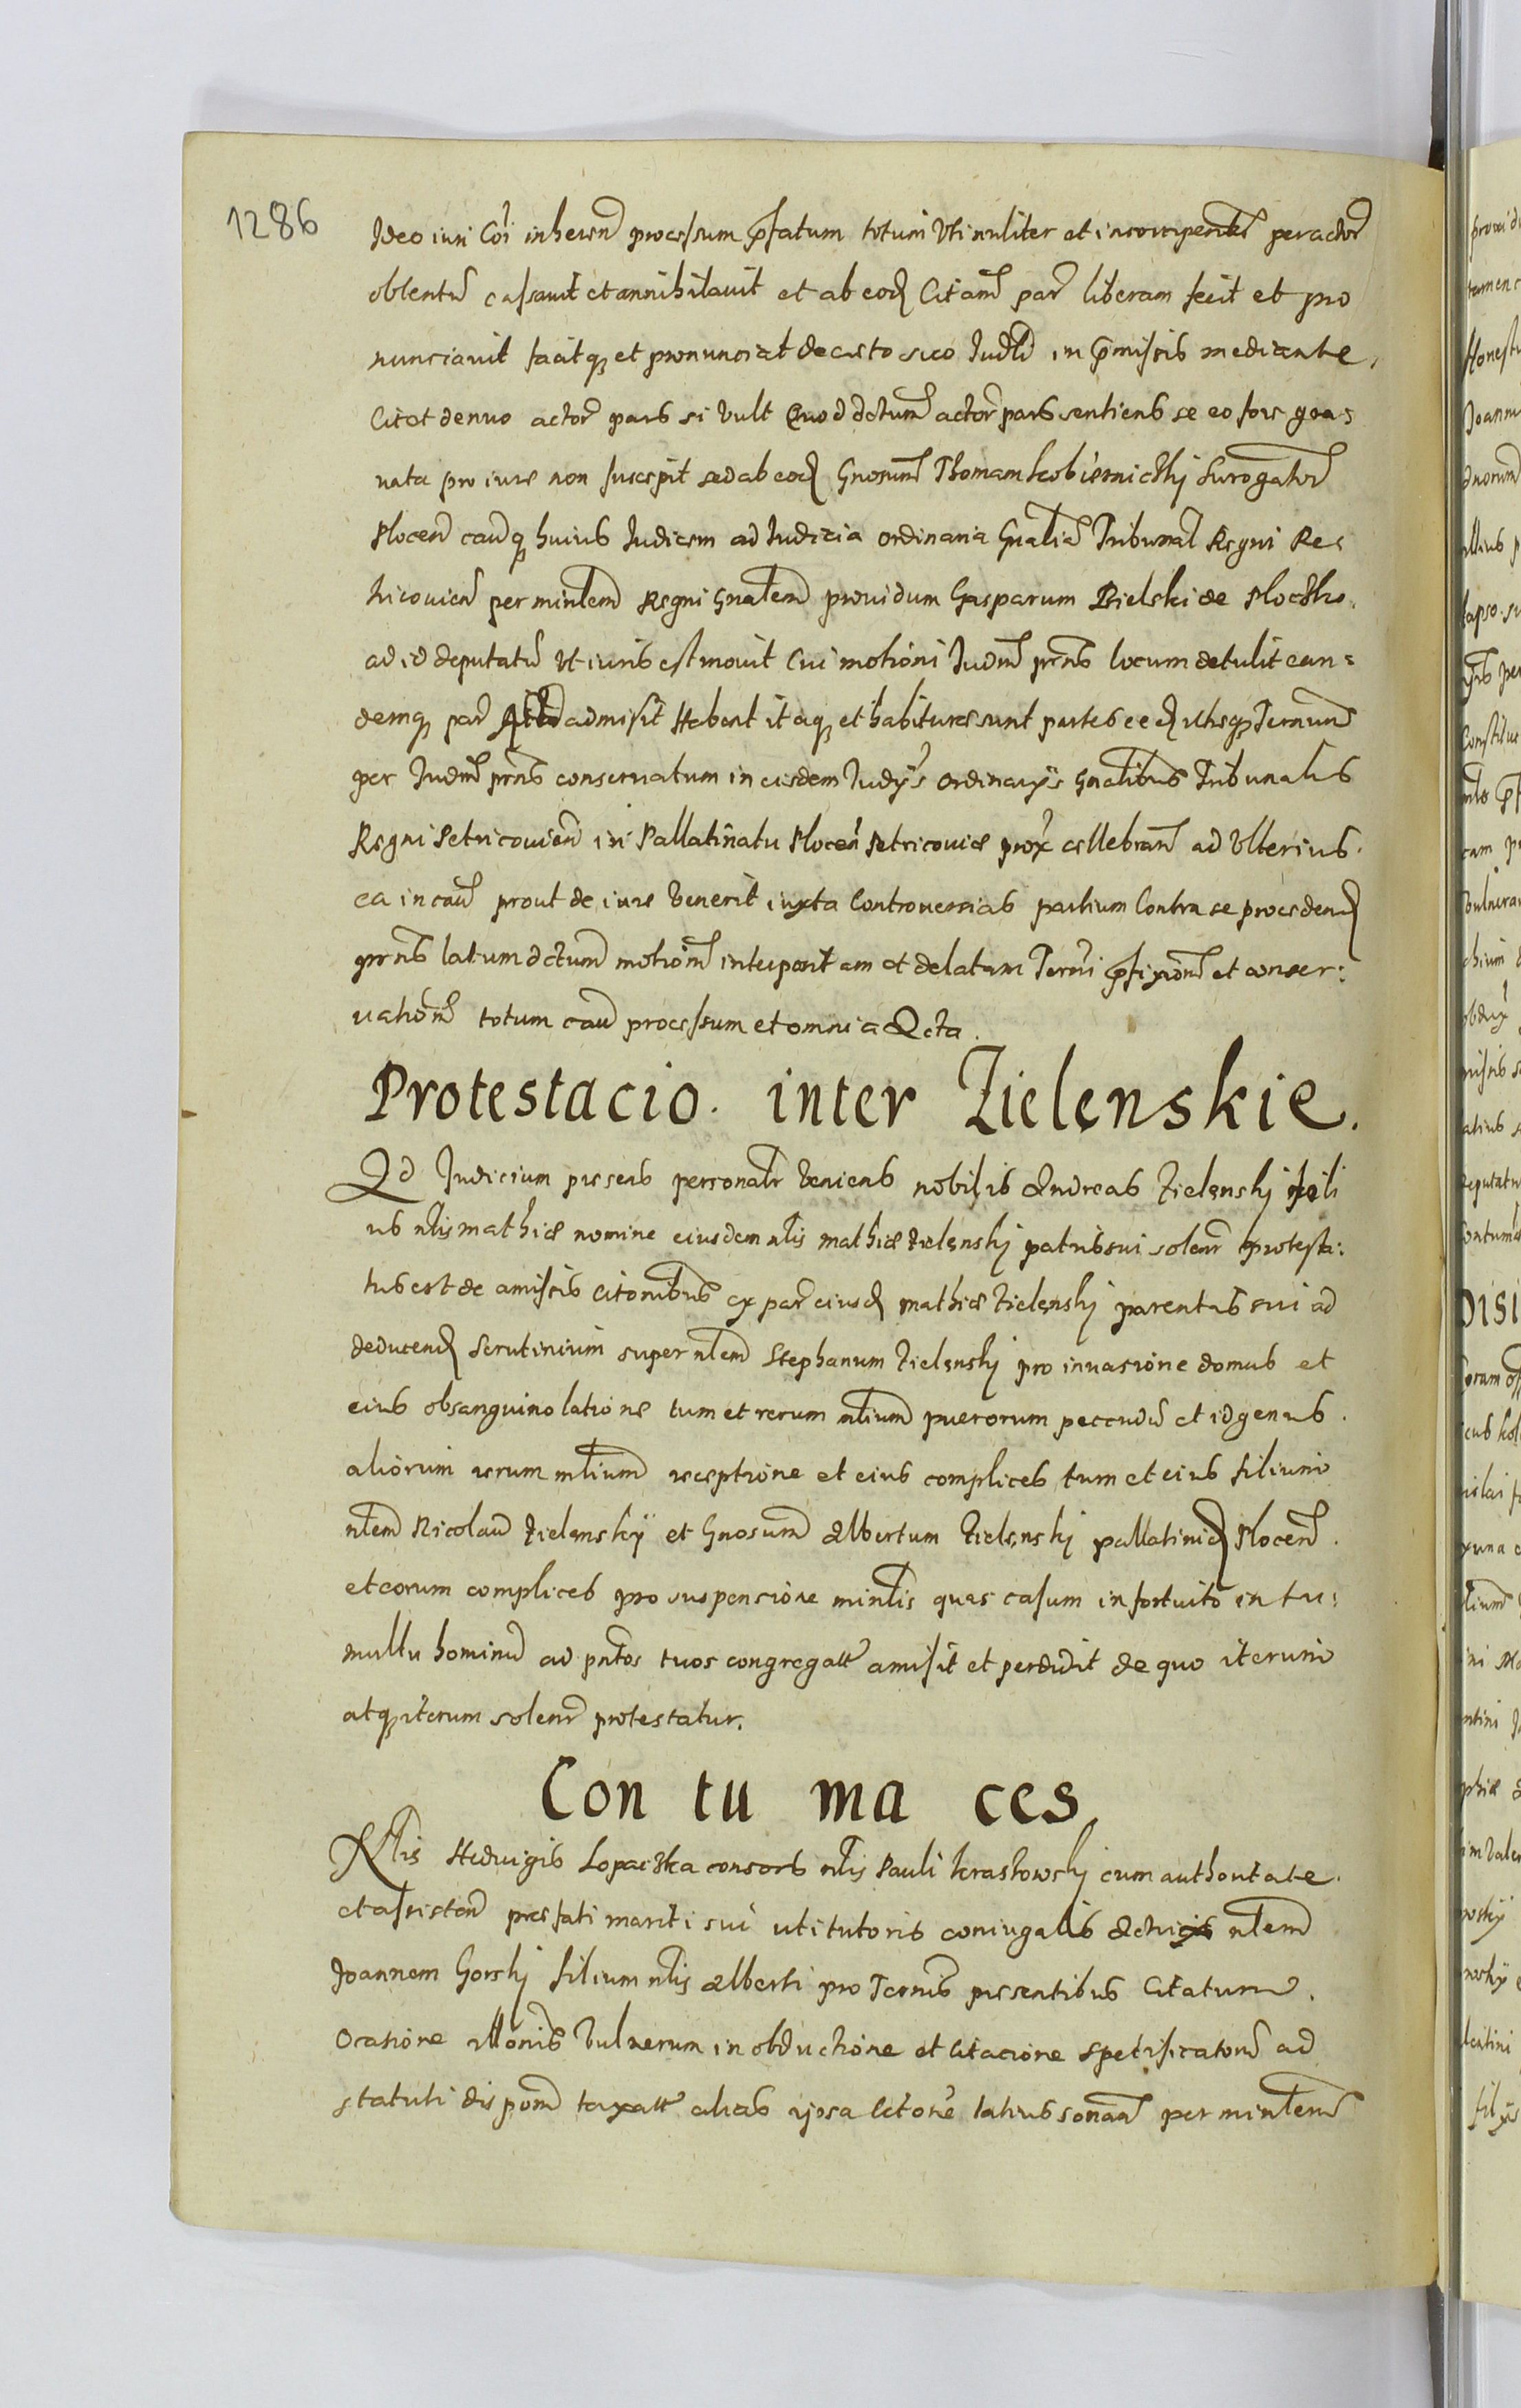 1286
Ideo iuri Coi inheren processum pfatum totum Uti nuliter et incompenter peractum
obtentum cassavit et annihilavit et ab eod Citam par liberam fecit et pro
nunciavit facitq et pronunciat decreto suo Iudli in pmissis mediante,
Citet denuo actor pars si vult Quod dctum actor pars sentiens se eo fore gra=
vata pro iure non suscepit sed ab eod Gnosum Thomam Kobiernickj Surogator
Plocen cauq huius Iudicem ad Iudicia ordinaria Gnalia Tribunal Regni Pe=
tricovien per mintem Regni Gnalem providum Gasparum Bielski de Plocko.
ad id deputatum Ut iuris est movit Cui motioni Iudm prns locum detulit ean=
demq par admisit Habent itaq et habiturae sunt partes eed utrsq Termum
per Iudm prns conservatum in eisdem Iudijs ordinarijs Gnalibus Tribunalis
Regni Petricovien in Pallatinatu Plocen Petricoviae prox cellebran ad Ulterius.
ea in cau prout de iure Venerit iuxta Controversias partium Contra se procedend
prns latum dctum motionem interpositam et delatam Termi pfixionem et conser:
vationem totum cau processum et omnia Acta.
Protestacio. inter Zielenskie.
Ad Iudicium presens personalr Veniens nobilis Andreas Zielenskj fili
us nlis mathiae nomine eiusdem nlis mathiae Zielenskj patris sui solenr protesta:
tus est de amissis citonibus ex par eiusd mathiae Zielenskj parentis sui ad
deducend Scrutinium super nlem Stephanum Zielenskj pro invasione domus et
eius obsanguinolatione tum et rerum nlium puerorum peccudum et id genus.
aliorum rerum mlium receptione et eius complices tum et eius filium
nlem Nicolaum Zielenskij et Gnosum Albertum Zielenskj pallatinid Plocen.
et eorum complices pro suspensione mintlis quas casum in fortuito in tu:
multu hominum ad pntos tuos congregatt amisit et perdidit de quo iterum
atq iterum solenr protestatur.
Con tu ma ces,
Nlis Hedvigis Lopacka consors nlis Pauli Kraskowskj cum authoritate.
et assisten praefati mariti sui uti tutoris coniugalis Actrix nlem
Joannem Gorskj filium nlis Alberti pro Ternis presentibus Citatum.
Ocasione illonis Vulnerum in obductione et Citacione specificatorum ad
statuti dispom taxatt alias ipsa Citone latius sonan per mintlem